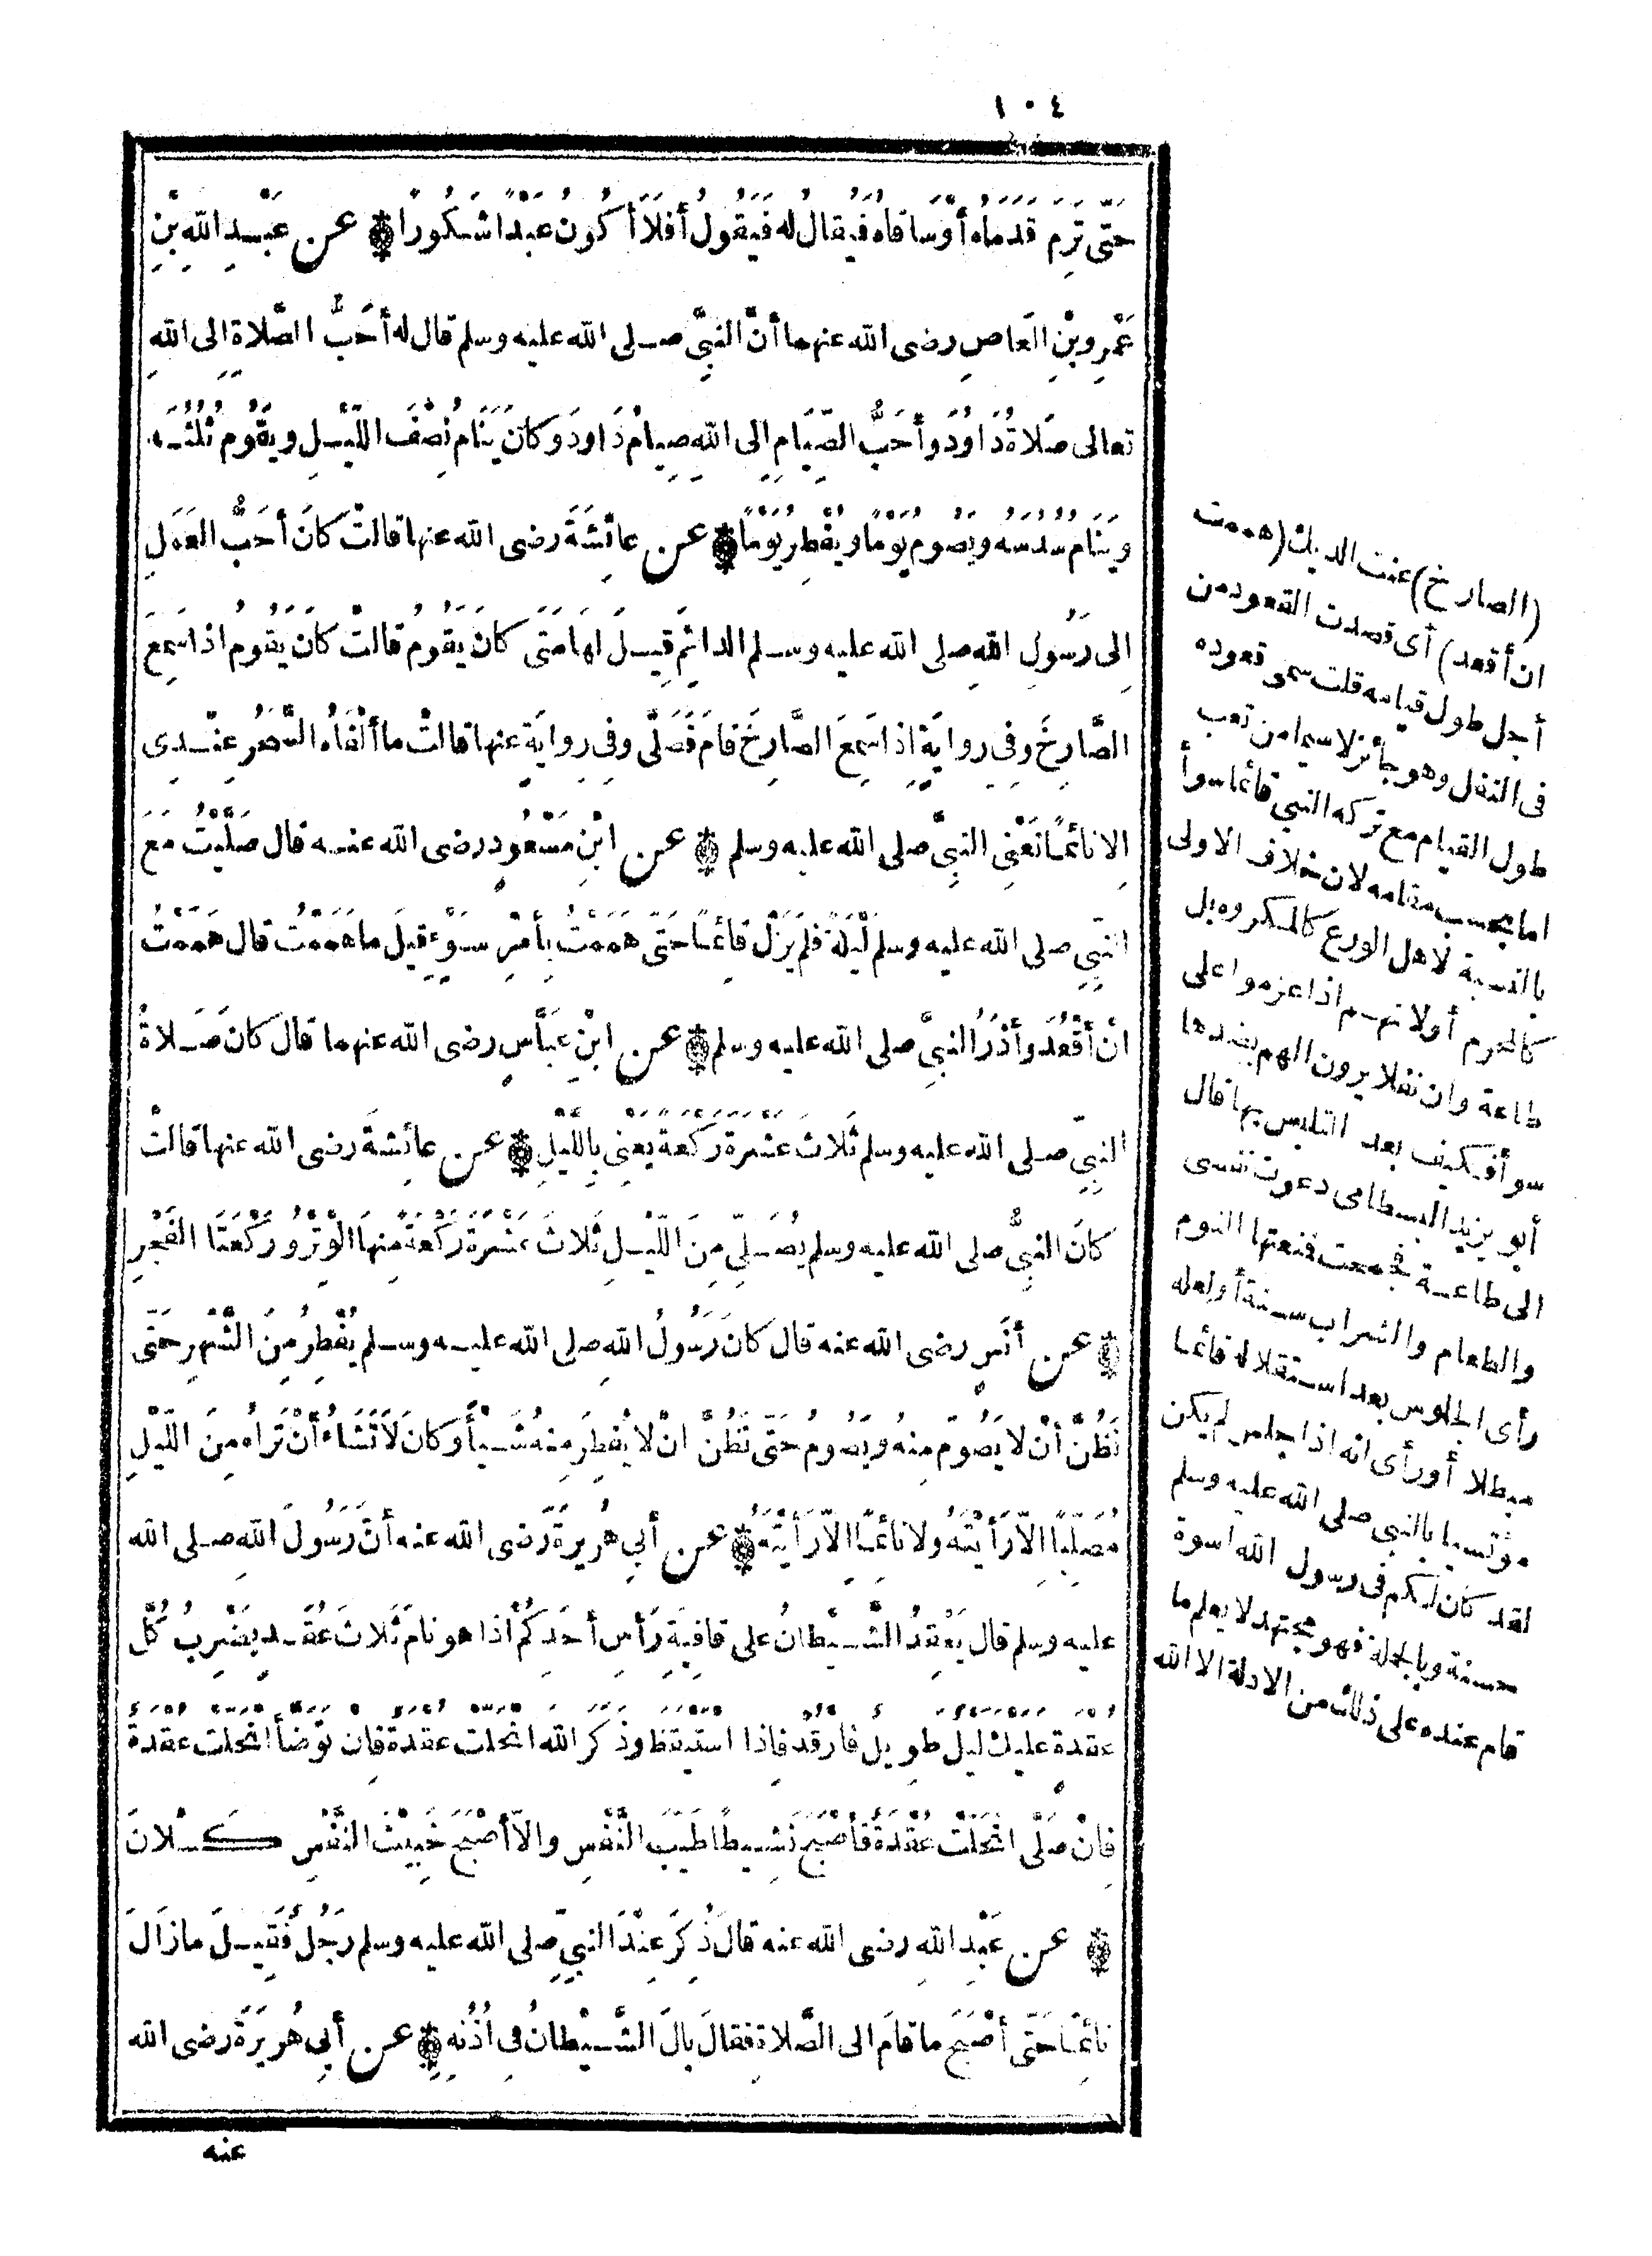 ١٠٤
حَتَّى تَرِمَ قَدَمَاهُ أَوْسَاقَاهُ فَيُقَالُ لَهُ فَيَقُولُ أَفَلَا أَكُونُ عَبْدًا شَكُورًا عن عَبْدِ اللهِ بْنِ
عَمْرِو بْنِ العَاصِ رضى الله عنهما أنَّ النبِيَّ صلى الله عليه وسلم قال له أَحَبُّ الصَّلاةِ إلى اللهِ
تعالى صَلاةُ دَاوُدَ وأَحَبُّ الصِّيَامِ إلى اللهِ صِيامُ دَاودَ وكانَ يَنَامُ نِصْفَ اللَّيْلِ ويَقُومُ ثُلُثَه
ويَنَامُ سُدُسَهُ ويَصُومُ يَوْمًا ويُفْطِرُ يَوْمًا عن عائِشَةَ رضى الله عنها قالتْ كانَ أحَبُّ العَمَلِ
إلى رَسُولِ اللهِ صلى الله عليه وسلم الدائِمَ قِيلَ لها مَتَى كانَ يَقُومُ قالتْ كانَ يَقُومُ اذا سَمِعَ
الصَّارِخَ وفِى رِوايَةٍ إذا سَمِعَ الصَّارِخَ قامَ فَصَلَّى وفِى رِوايَةٍ عنها قالتْ ما ألْفَاهُ السَّحَرُ عِنْدِى
الا نائِمًا تَعْنِى النبِيَّ صلى الله عليه وسلم عن ابْنِ مَسْعُودٍ رضى الله عنه قال صَلَّيْتُ مَعَ
النبِيِّ صلى الله عليه وسلم لَيْلَةً فلم يَزَلْ قائِمًا حَتَّى هَمَمْتُ بِأمْرِ سَوْءٍ قِيلَ ما هَمَمْتَ قال هَمَمْتُ
انْ أَقْعُدَ وأَذَرَ النبِيَّ صلى الله عليه وسلم عن ابْنِ عَبَّاسٍ رضى الله عنهما قال كانَ صَلاةُ
النبِيِّ صلى الله عليه وسلم ثَلاثَ عَشْرَةَ رَكْعَةً يَعْنِى بِاللَّيْلِ عن عائِشَةَ رضى الله عنها قالتْ
كانَ النبِيُّ صلى الله عليه وسلم يُصَلِّى مِنَ اللَّيْلِ ثَلاثَ عَشْرَةَ رَكْعَةً مِنها الْوِتْرُ ورَكْعَتَا الفَجْرِ
عن أنَسٍ رضى الله عنه قال كانَ رَسُولُ اللهِ صلى الله عليه وسلم يُفْطِرُ مِنَ الشَّهْرِ حَتَّى
نَظُنَّ أنْ لا يَصُومَ مِنهُ ويَصُومُ حَتَّى نَظُنَّ انْ لا يُفْطِرَ مِنهُ شَيْأً وكانَ لَا تَشَاءُ أَنْ تَرَاهُ مِنَ اللَّيْلِ
مُصَلِّيًا إلاّ رَأَيْتَهُ ولا نائِمًا إلاّ رَأَيْتَهُ عن أبِى هُرَيرَةَ رَضى الله عنه أنَّ رَسُولَ اللهِ صلى الله
عليه وسلم قال يَعْقِدُ الشَّيْطانُ على قافِيَةِ رَأسِ أحَدِكُمْ اذا هو نامَ ثَلاثَ عُقَدٍ يَضْرِبُ كُلَّ
عُقْدَةٍ عَلَيْكَ لَيْلٌ طَوِيلٌ فارْقُدْ فإذا اسْتَيْقَظَ وذَكَرَ اللهَ انْحَلَّتْ عُقْدَةٌ فإن تَوَضَّأَ انْحَلَّتْ عُقْدَةٌ
فإنْ صَلَّى انْحَلَّتْ عُقْدَةٌ فأَصْبَحَ نَشِيطًا طَيِّبَ النَّفْسِ والاّ أصْبَحَ خَبِيثَ النَّفْسِ كَسْلَانَ
عن عَبْدِ اللهِ رضى الله عنه قالَ ذُكِرَ عِنْدَ النبِيِّ صلى الله عليه وسلم رَجُلٌ فَقِيلَ مازَالَ
نائِمًا حَتَّى أصْبَحَ ما قامَ الى الصَّلاةِ فقالَ بالَ الشَّيْطانُ فِى اُذُنِهِ عن أبِى هُرَيرَةَ رضى الله
عنه
(الصارخ) عنت الديك (هممت
ان أقعد) أى قصدت القعود من
أجل طول قيامه قلت سمى قعوده
فى النفل وهو جائز لا سيما من تعب
طول القيام مع تركه النبي قائما سوأ
اما بحسب مقامه لان خلاف الاولى
بالنسبة لاهل الورع كالمكروه بل
كالمحرم أو لانهم اذا عزموا على
طاعة وان نفلا يرون الهم بضدها
سوأ فكيف بعد التلبس بها قال
أبو يزيد البسطامى دعوت نفسى
الى طاعة فجمحت فمنعتها النوم
والطعام والشراب سنة أو لعله
رأى الجلوس بعد استقلاله قائما
مبطلا أو رأى انه اذا جلس لم يكن
مؤتسيا بالنبى صلى الله عليه وسلم
لقد كان لكم فى رسول الله اسوة
حسنة وبالجملة فهو مجتهد لا يعلم ما
قام عنده على ذلك من الادلة الا الله